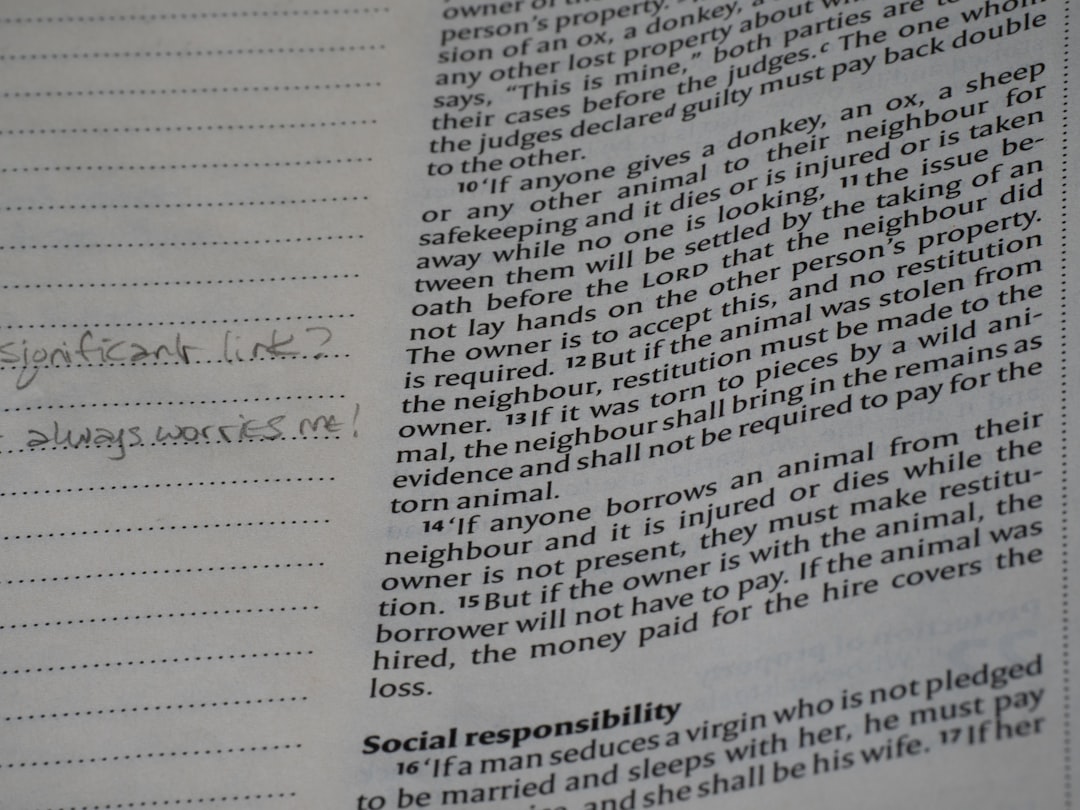 significant link?
always worries me!
owner of the
person's property.
sion of an ox, a donkey, a
any other lost property about
says, "This is mine," both parties are
their cases before the judges.c The one whom
the judges declared guilty must pay back double
to the other.
10 'If anyone gives a donkey, an ox, a sheep
or any other animal to their neighbour for
safekeeping and it dies or is injured or is taken
away while no one is looking, 11 the issue be-
tween them will be settled by the taking of an
oath before the LORD that the neighbour did
not lay hands on the other person's property.
The owner is to accept this, and no restitution
is required. 12 But if the animal was stolen from
the neighbour, restitution must be made to the
owner. 13 If it was torn to pieces by a wild ani-
mal, the neighbour shall bring in the remains as
evidence and shall not be required to pay for the
torn animal.
14 'If anyone borrows an animal from their
neighbour and it is injured or dies while the
owner is not present, they must make restitu-
tion. 15 But if the owner is with the animal, the
borrower will not have to pay. If the animal was
hired, the money paid for the hire covers the
loss.
Social responsibility
16 'If a man seduces a virgin who is not pledged
to be married and sleeps with her, he must pay
and she shall be his wife. 17 If her